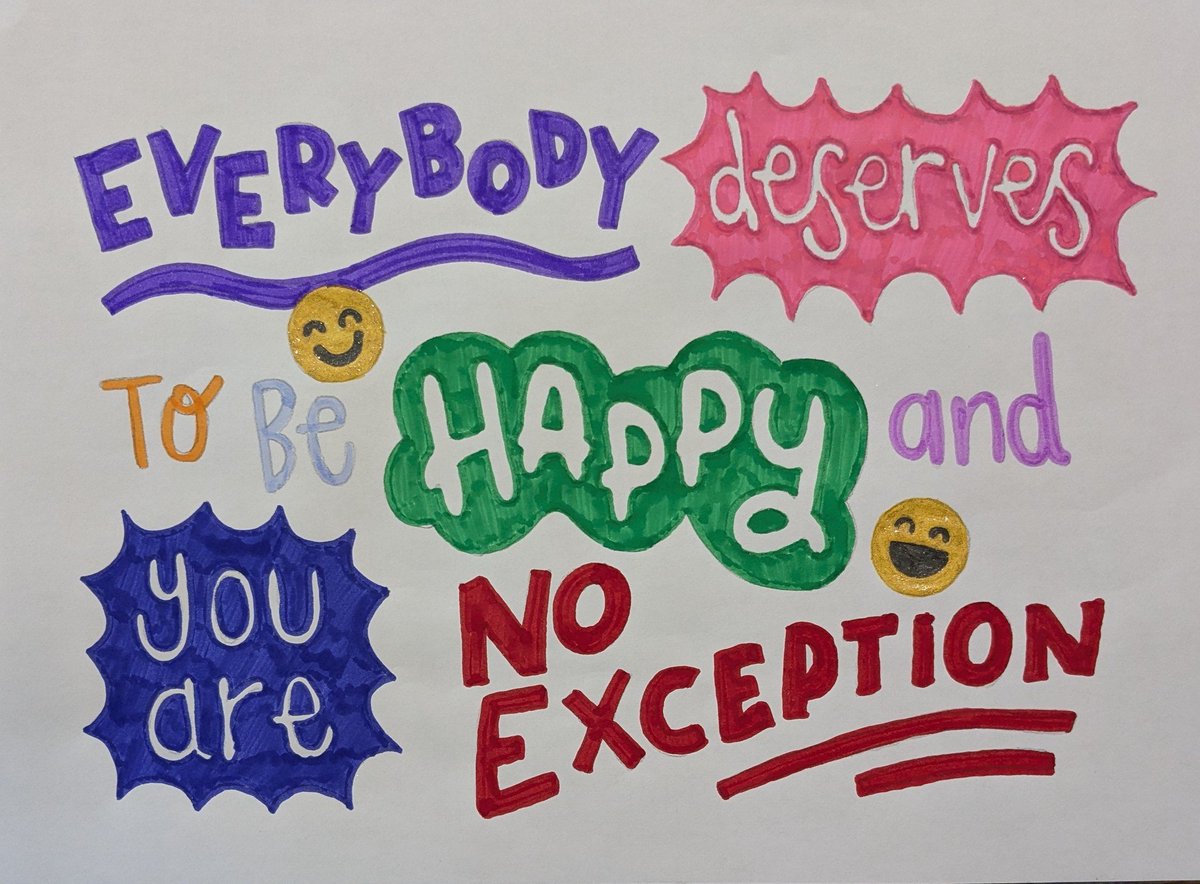 EVERYBODY deserves
To Be HAPPY and
you are NO EXCEPTION